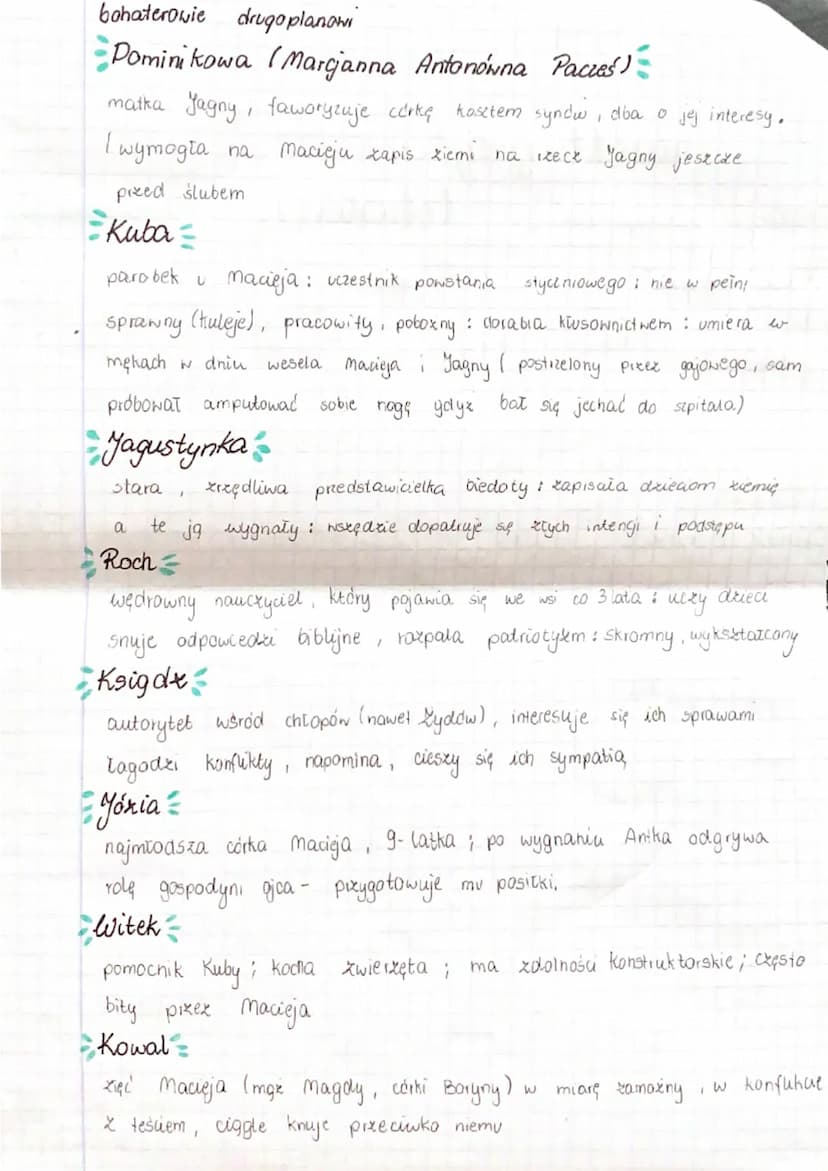 bohaterowie drugoplanowi
Dominikowa (Marcjanna Antonówna Paczeć)
matka Jagny, faworyzuje córkę kosztem synów, dba o jej interesy.
(wymogła na Macieju zapis ziemi na rzecz Jagny jeszcze
przed ślubem
Kuba
parobek u Macieja: uczestnik powstania styczniowego: nie w pełni
sprawny (kuleje), pracowity, pobożny: dorabia kłusownictwem: umiera w
mękach w dniu wesela Macieja i Jagny (postrzelony przez gajowego, sam
próbował amputować sobie nogę gdyż bał się jechać do szpitala)
Jagustynka
stara, zrzędliwa przedstawicielka biedoty: zapisała dzieciom ziemię
a te ją wygnały: wszędzie dopatruje się złych intencji i podstępu
Roch
wędrowny nauczyciel, który pojawia się we wsi co 3 lata: uczy dzieci
snuje odpowiedzi biblijne, rozpala patriotyzm: skromny, wykształcony
Ksiądz
autorytet wśród chłopów (nawet Żydów), interesuje się ich sprawami
łagodzi konflikty, napomina, cieszy się ich sympatią
Józia
najmłodsza córka Macieja, 9-latka; po wygnaniu Antka odgrywa
rolę gospodyni ojca - przygotowuje mu posiłki.
Witek
pomocnik Kuby; kocha zwierzęta; ma zdolności konstruktorskie; często
bity przez Macieja
Kowal
zięć Macieja (mąż Magdy, córki Boryny) w miarę zamożny, w konflikcie
z teściem, ciągle knuje przeciwko niemu